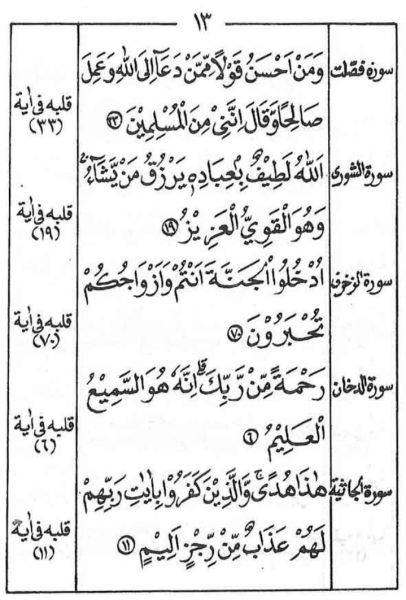 ١٣
سورة فصّلت
وَمَنْ اَحْسَنُ قَوْلًا مِّمَّنْ دَعَآ اِلَى اللّٰهِ وَعَمِلَ
صَالِحًا وَّقَالَ اِنَّنِىْ مِنَ الْمُسْلِمِيْنَ ﴿٣٣﴾
قلبه فى اٰية
(٣٣)
سورة الشورى
اَللّٰهُ لَطِيْفٌۢ بِعِبَادِهٖ يَرْزُقُ مَنْ يَّشَآءُ ۚ
وَهُوَ الْقَوِيُّ الْعَزِيْزُ ﴿١٩﴾
قلبه فى اٰية
(١٩)
سورة الزخرف
اُدْخُلُوا الْجَنَّةَ اَنْتُمْ وَاَزْوَاجُكُمْ
تُحْبَرُوْنَ ﴿٧٠﴾
قلبه فى اٰية
(٧٠)
سورة الدخان
رَحْمَةً مِّنْ رَّبِّكَ ۗ اِنَّهٗ هُوَ السَّمِيْعُ
الْعَلِيْمُ ﴿٦﴾
قلبه فى اٰية
(٦)
سورة الجاثية
هٰذَا هُدًى ۚ وَّالَّذِيْنَ كَفَرُوْا بِاٰيٰتِ رَبِّهِمْ
لَهُمْ عَذَابٌ مِّنْ رِّجْزٍ اَلِيْمٍ ﴿١١﴾
قلبه فى اٰية
(١١)